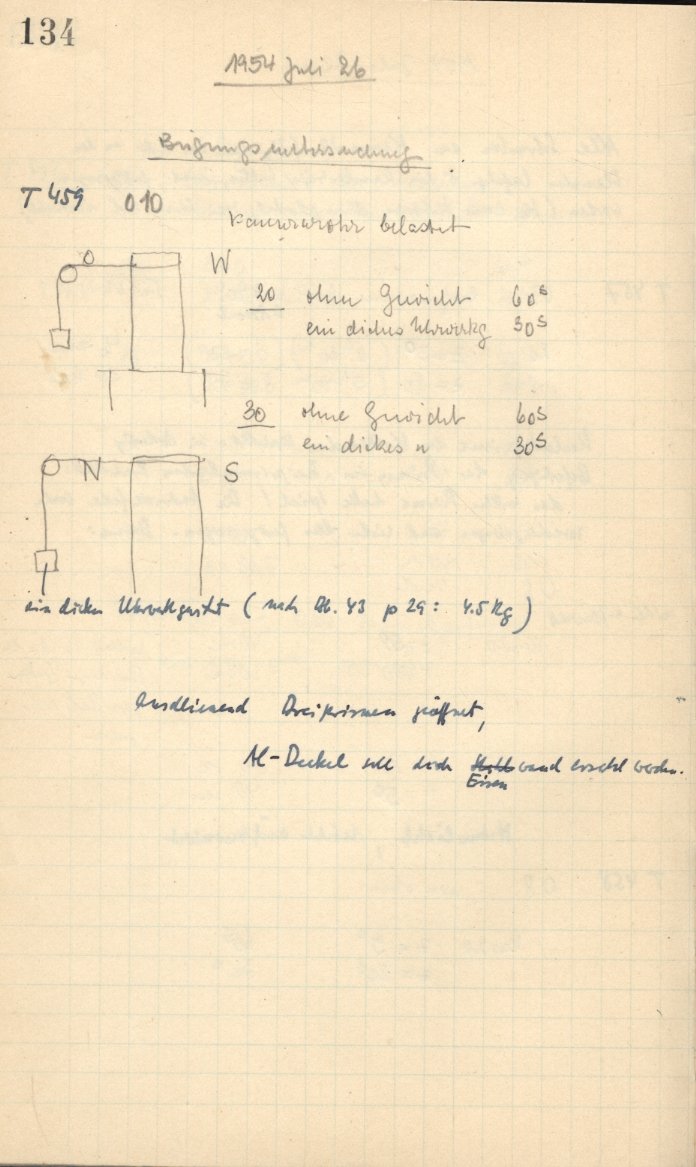 134
1954 Juli 26
Biegungsuntersuchung
T 459 010
Kamerarohr belastet
O W
20 ohne Gewicht 60s
ein dickes Uhrwerkg 30s
30 ohne Gewicht 60s
ein dickes " 30s
N S
ein dickes Uhrwerkgewicht ( nach Bb. 43 p 29: 4.5 Kg )
Anschliessend Dreiprismen geöffnet,
Al-Deckel soll durch wand ersetzt werden.
Eisen